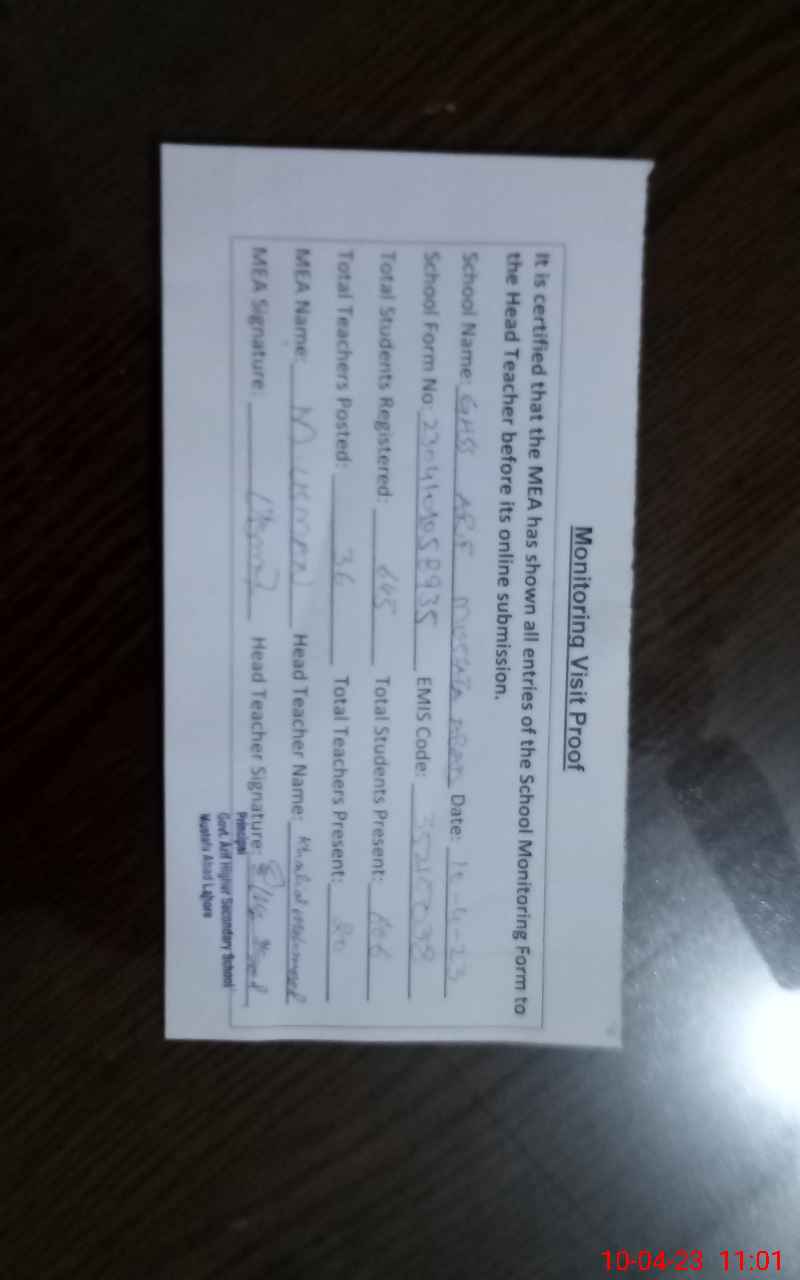 Monitoring Visit Proof
It is certified that the MEA has shown all entries of the School Monitoring Form to
the Head Teacher before its online submission.
School Name: GHSS ARIF MUSTAFA ABAD Date: 10-4-23
School Form No: EMIS Code:
Total Students Registered: 645 Total Students Present:
Total Teachers Posted: 36 Total Teachers Present: 20
MEA Name: M USMAN Head Teacher Name: Khalid Mehmood
MEA Signature: Head Teacher Signature:
Principal
Govt. Arif Higher Secondary School
Mustafa Abad Lahore
10-04-23 11:01